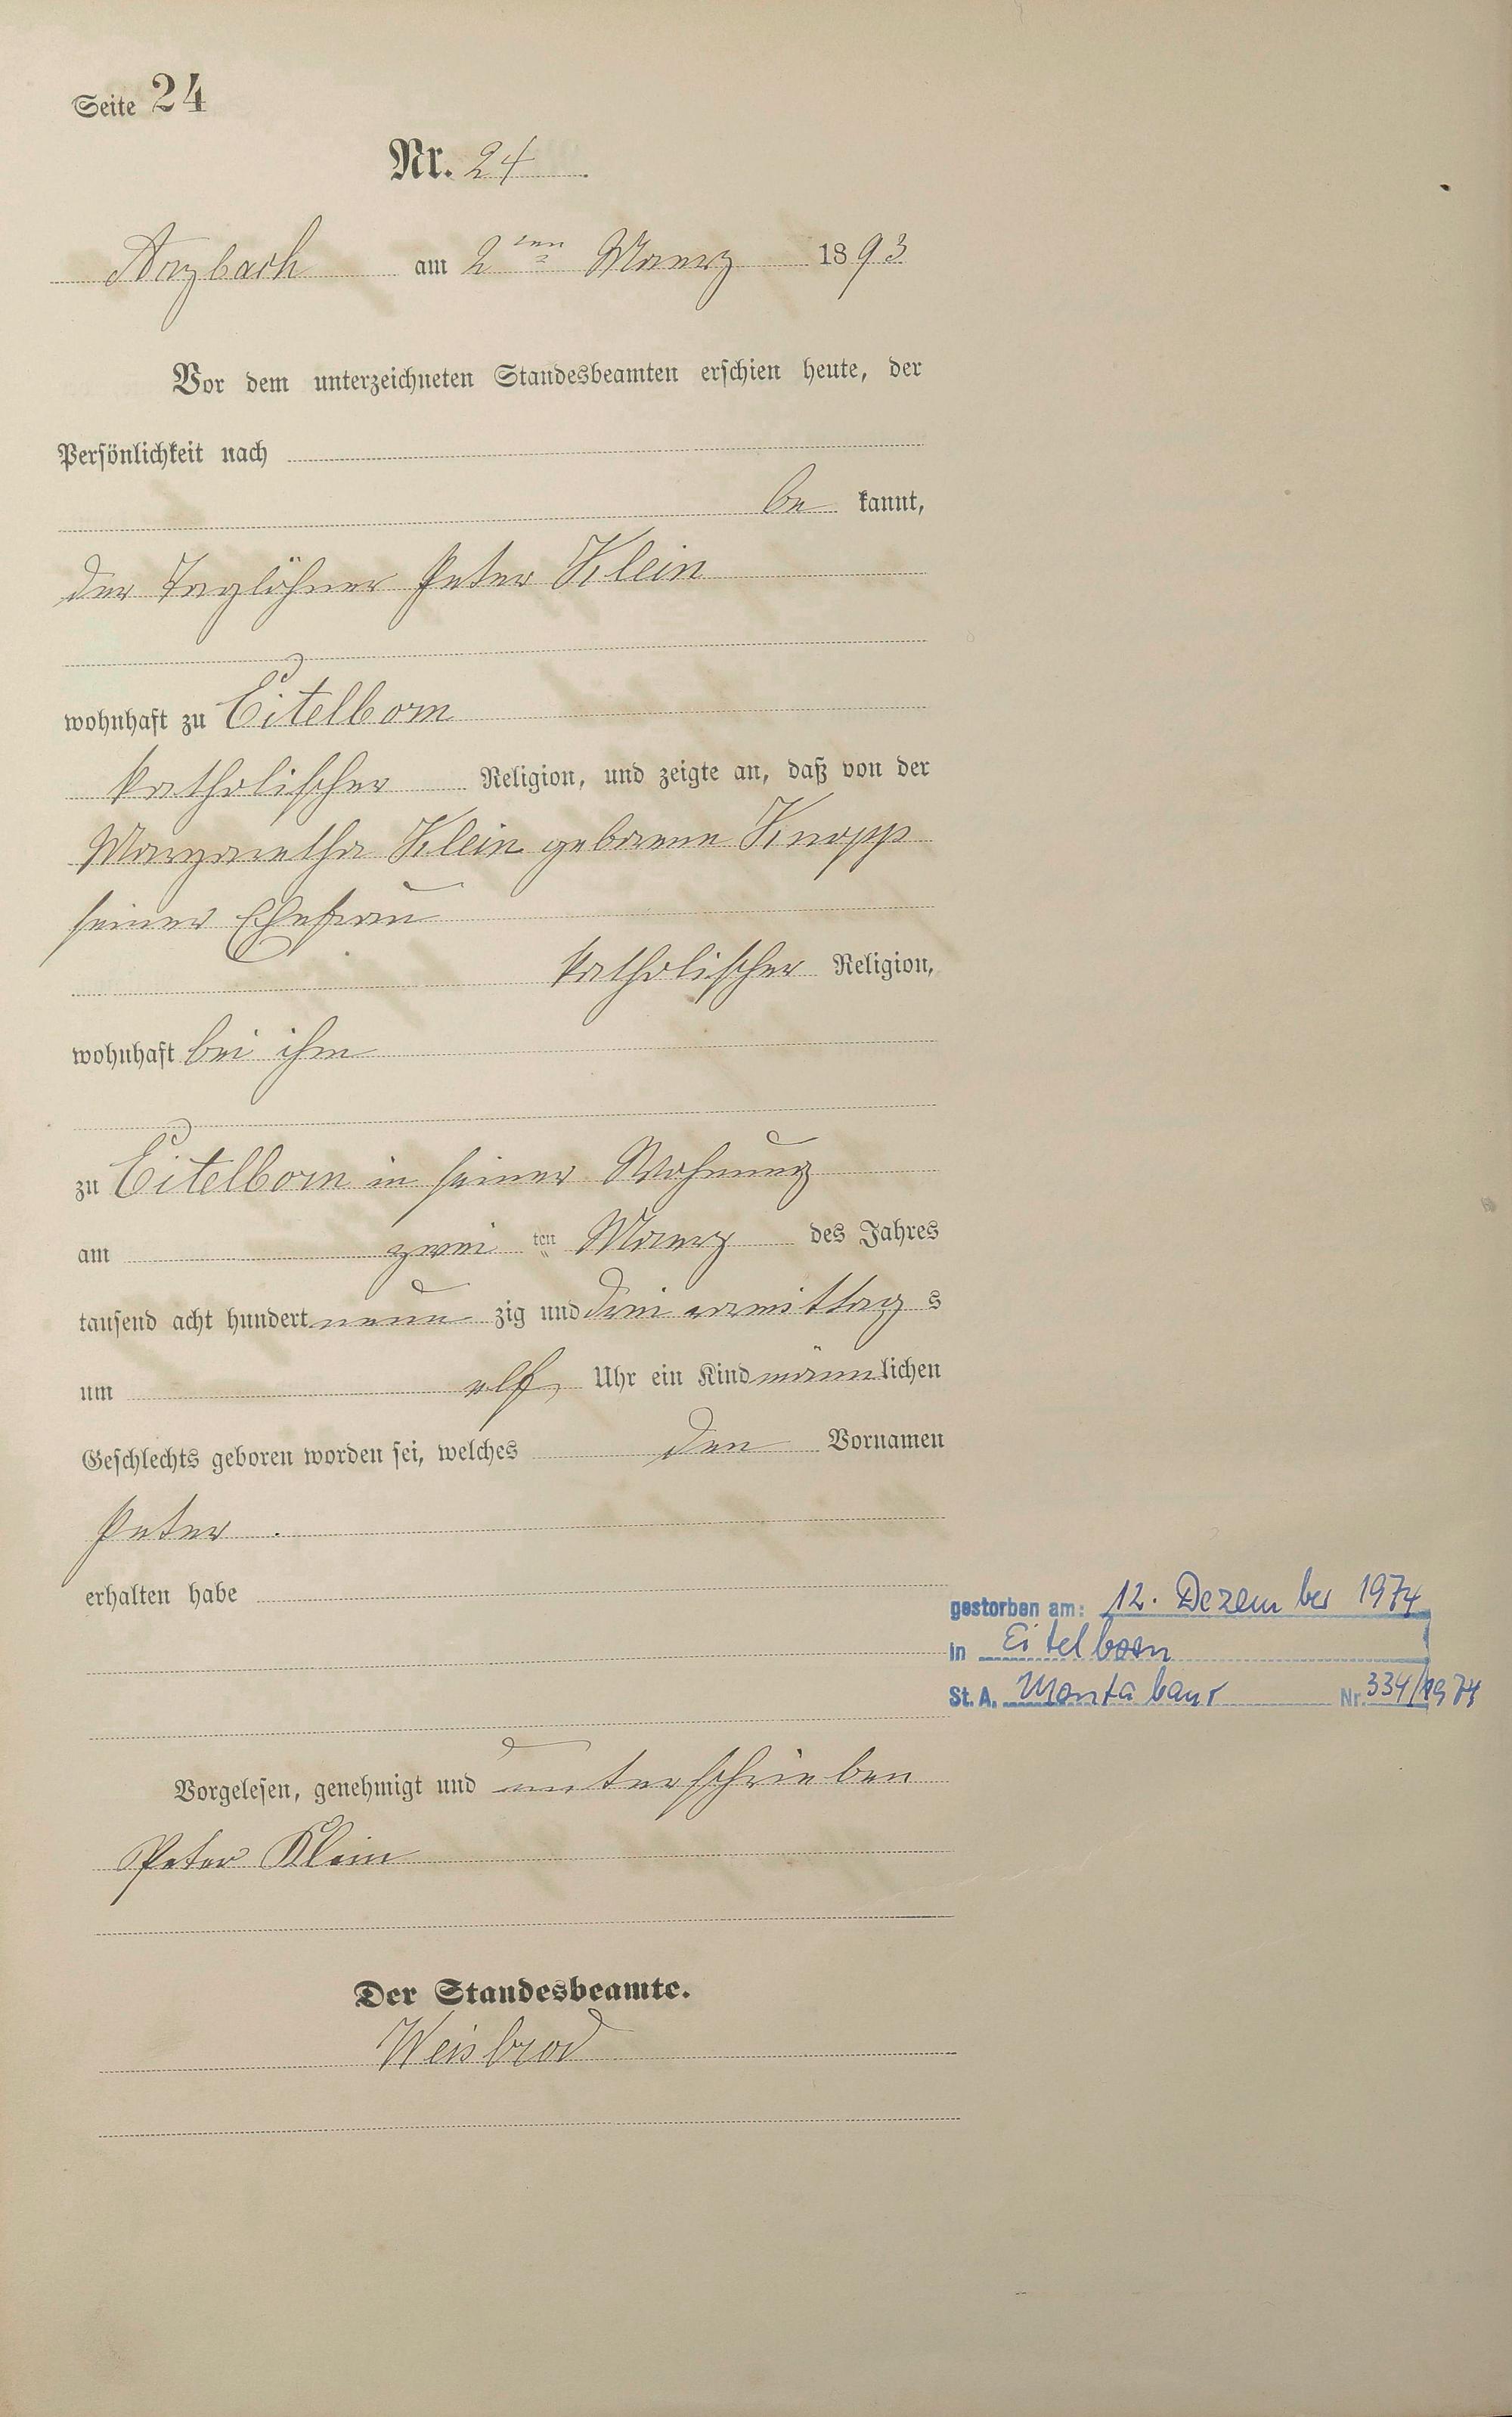 Seite 24
Nr. 24
Arzbach am 2ten Maerz 1893
Vor dem unterzeichneten Standesbeamten erschien heute, der
Persönlichkeit nach
be kannt,
der Taglöhner Peter Klein
wohnhaft zu Eitelborn
katholischer Religion, und zeigte an, daß von der
Margaretha Klein geborene Knopp
seiner Ehefrau
katholischer Religion,
wohnhaft bei ihm
zu Eitelborn in seiner Wohnung
am zwei ten Maerz des Jahres
tausend acht hundert neun zig und drei vormittag s
um elf Uhr ein Kind männlichen
Geschlechts geboren worden sei, welches den Vornamen
Peter
erhalten habe
gestorben am: 12. Dezember 1974
in Eitelborn
St. A. Montabaur Nr. 334/1974
Vorgelesen, genehmigt und unterschrieben
Peter Klein
Der Standesbeamte.
Weisbrod